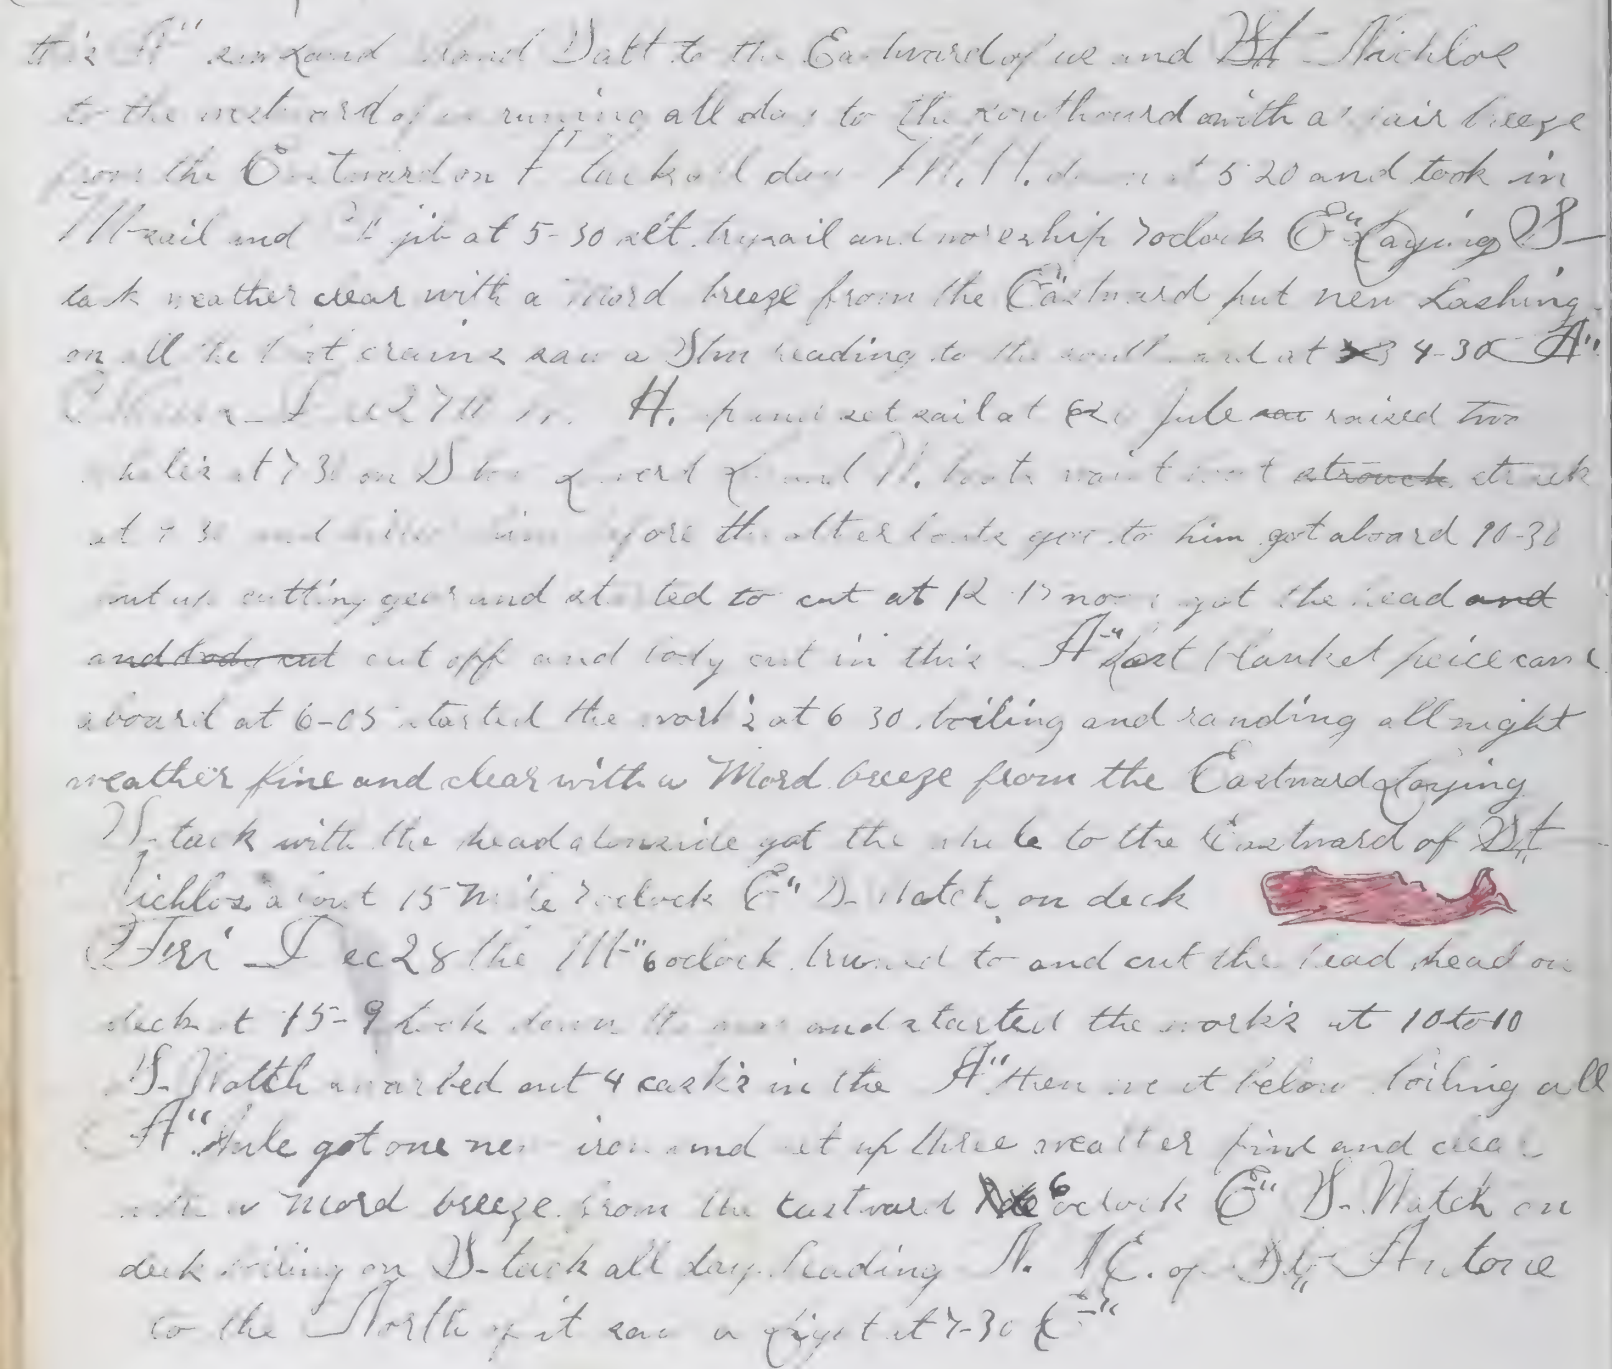 this A" sunk and land Datt to the Eastward of us and St Nichlos
to the westward of us runing all day to the southward with a fair breeze
from the Eastward on P tack all day M. H. down at 5 20 and took in
M-sail and F jib at 5-30 set trysail and wore ship 7 oclock E" Laying S-
tack weather clear with a Mord breeze from the Eastward put new Lashing
on all the boat crains saw a Stm heading to the southward at 4-30 A"
Dec 27 M H. up and set sail at 6 Jule saw raised two
whales at 7 30 on S and boats went struck
at and killed him before the other boats got to him got aboard 10-30
put up cutting gear and started to cut at 12 15 noon got the head and
and body cut cut off and body cut in this A" Last blanket peice came
aboard at 6-05 started the work's at 6 30 boiling and running all night
weather fine and clear with a Mord breeze from the Eastward Laying
S-tack with the head alonside got the whale to the Eastward of St
Nichlos about 15 Mile 7 oclock E" S-Watch on deck
Fri Dec 28 the M" 6 oclock turned to and cut the head head on
deck at 15-9 took down the and started the work's at 10 to 10
S-Watch out 4 cask's in the A" then it below boiling all
A" Jule got one new iron and set up three weather fine and clear
with a Mord breeze from the Eastward 6 oclock E" S-Watch on
deck boiling on S-tack all day heading N. E. of St Antone
to the North of it saw a Light at 7-30 E"